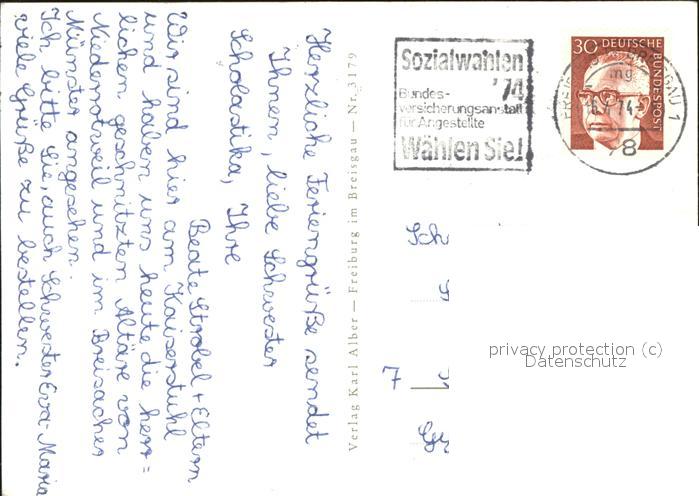 Herzliche Feriengrüße sendet
Ihnen, liebe Schwester
Scholastika, Ihre
Beate Strobel + Eltern
Wir sind hier am Kaiserstuhl
und haben uns heute die herr=
lichen geschnitzten Altäre von
Niederrotweil und im Breisacher
Münster angesehen.
Ich bitte Sie, auch Schwester Eva-Maria
viele Grüße zu bestellen.
Verlag Karl Alber — Freiburg im Breisgau — Nr. 3179
Sozialwahlen
'74
Bundes-
versicherungsanstalt
für Angestellte
Wählen Sie!
30 DEUTSCHE
BUNDESPOST
mg
74
78
Sch
7
privacy protection (c)
Datenschutz